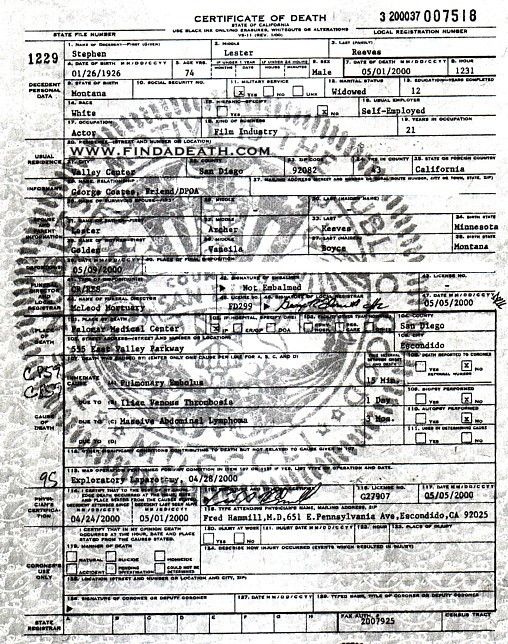 CERTIFICATE OF DEATH
STATE OF CALIFORNIA
USE BLACK INK ONLY/NO ERASURES, WHITEOUTS OR ALTERATIONS
3 200037 007518
STATE FILE NUMBER
LOCAL REGISTRATION NUMBER
1229
DECEDENT PERSONAL DATA
1. NAME OF DECEDENT—FIRST (GIVEN)
2. MIDDLE
3. LAST (FAMILY)
Stephen Lester Reeves
4. DATE OF BIRTH MM/DD/CCYY
5. AGE YRS.
IF UNDER 1 YEAR
IF UNDER 24 HOURS
6. SEX
7. DATE OF DEATH MM/DD/CCYY
8. HOUR
01/26/1926 74 Male 05/01/2000 1231
9. STATE OF BIRTH
10. SOCIAL SECURITY NO.
11. MILITARY SERVICE
12. MARITAL STATUS
13. EDUCATION—YEARS COMPLETED
Montana X YES NO UNK Widowed 12
14. RACE
15. HISPANIC—SPECIFY
16. USUAL EMPLOYER
White YES X NO Self-Employed
17. OCCUPATION
18. KIND OF BUSINESS
19. YEARS IN OCCUPATION
Actor Film Industry 21
USUAL RESIDENCE
20. RESIDENCE—(STREET AND NUMBER OR LOCATION)
WWW.FINDADEATH.COM
21. CITY
22. COUNTY
23. ZIP CODE
24. YRS IN COUNTY
25. STATE OR FOREIGN COUNTRY
Valley Center San Diego 92082 California
INFORMANT
26. NAME, RELATIONSHIP
27. MAILING ADDRESS (STREET AND NUMBER OR RURAL ROUTE NUMBER, CITY OR TOWN, STATE, ZIP)
George Coates, Friend/DPOA
28. NAME OF SURVIVING SPOUSE—FIRST
29. MIDDLE
30. LAST (MAIDEN NAME)
31. NAME OF FATHER—FIRST
32. MIDDLE
33. LAST
34. BIRTH STATE
Lester Reeves Minnesota
35. NAME OF MOTHER—FIRST
36. MIDDLE
37. LAST (MAIDEN)
38. BIRTH STATE
Golden Boyce Montana
39. DATE MM/DD/CCYY
40. PLACE OF FINAL DISPOSITION
05/09/2000
FUNERAL DIRECTOR AND LOCAL REGISTRAR
42. SIGNATURE OF EMBALMER
43. LICENSE NO.
CR/RES Not Embalmed -
44. NAME OF FUNERAL DIRECTOR
45. LICENSE NO.
46. SIGNATURE OF LOCAL REGISTRAR
47. DATE MM/DD/CCYY
McLeod Mortuary FD299 05/05/2000
PLACE OF DEATH
101. PLACE OF DEATH
102. IF HOSPITAL, SPECIFY ONE:
104. COUNTY
Palomar Medical Center X IP ER/OP DOA San Diego
105. STREET ADDRESS—(STREET AND NUMBER OR LOCATION)
106. CITY
555 East Valley Parkway Escondido
CAUSE OF DEATH
107. DEATH WAS CAUSED BY: (ENTER ONLY ONE CAUSE PER LINE FOR A, B, C, AND D)
108. DEATH REPORTED TO CORONER
YES X NO
REFERRAL NUMBER
IMMEDIATE CAUSE (A) Pulmonary Embolus 15 Min.
109. BIOPSY PERFORMED
DUE TO (B) Iliac Venous Thrombosis 1 Day
110. AUTOPSY PERFORMED
YES X NO
DUE TO (C) Massive Abdominal Lymphoma 3 Mos.
111. USED IN DETERMINING CAUSE
YES NO
DUE TO (D)
112. OTHER SIGNIFICANT CONDITIONS CONTRIBUTING TO DEATH BUT NOT RELATED TO CAUSE GIVEN IN 107
113. WAS OPERATION PERFORMED FOR ANY CONDITION IN ITEM 107 OR 112? IF YES, LIST TYPE OF OPERATION AND DATE.
Exploratory Laparotomy, 04/28/2000
95
PHYSICIAN'S CERTIFICATION
114. I CERTIFY THAT TO THE BEST OF MY KNOWLEDGE DEATH OCCURRED AT THE HOUR, DATE AND PLACE STATED FROM THE CAUSES STATED.
116. LICENSE NO.
117. DATE MM/DD/CCYY
G27907 05/05/2000
04/24/2000 05/01/2000
118. TYPE ATTENDING PHYSICIAN'S NAME, MAILING ADDRESS, ZIP
Fred Hammill,M.D,651 E.Pennsylvania Ave,Escondido,CA 92025
CORONER'S USE ONLY
I CERTIFY THAT IN MY OPINION DEATH OCCURRED AT THE HOUR, DATE AND PLACE STATED FROM THE CAUSES STATED.
120. INJURY AT WORK
121. INJURY DATE MM/DD/CCYY
122. HOUR
123. PLACE OF INJURY
YES NO
119. MANNER OF DEATH
124. DESCRIBE HOW INJURY OCCURRED (EVENTS WHICH RESULTED IN INJURY)
NATURAL SUICIDE HOMICIDE
ACCIDENT PENDING INVESTIGATION COULD NOT BE DETERMINED
125. LOCATION (STREET AND NUMBER OR LOCATION AND CITY, ZIP)
126. SIGNATURE OF CORONER OR DEPUTY CORONER
127. DATE MM/DD/CCYY
128. TYPED NAME, TITLE OF CORONER OR DEPUTY CORONER
STATE REGISTRAR
A B C D E F G H
FAX AUTH. #
2007925
CENSUS TRACT